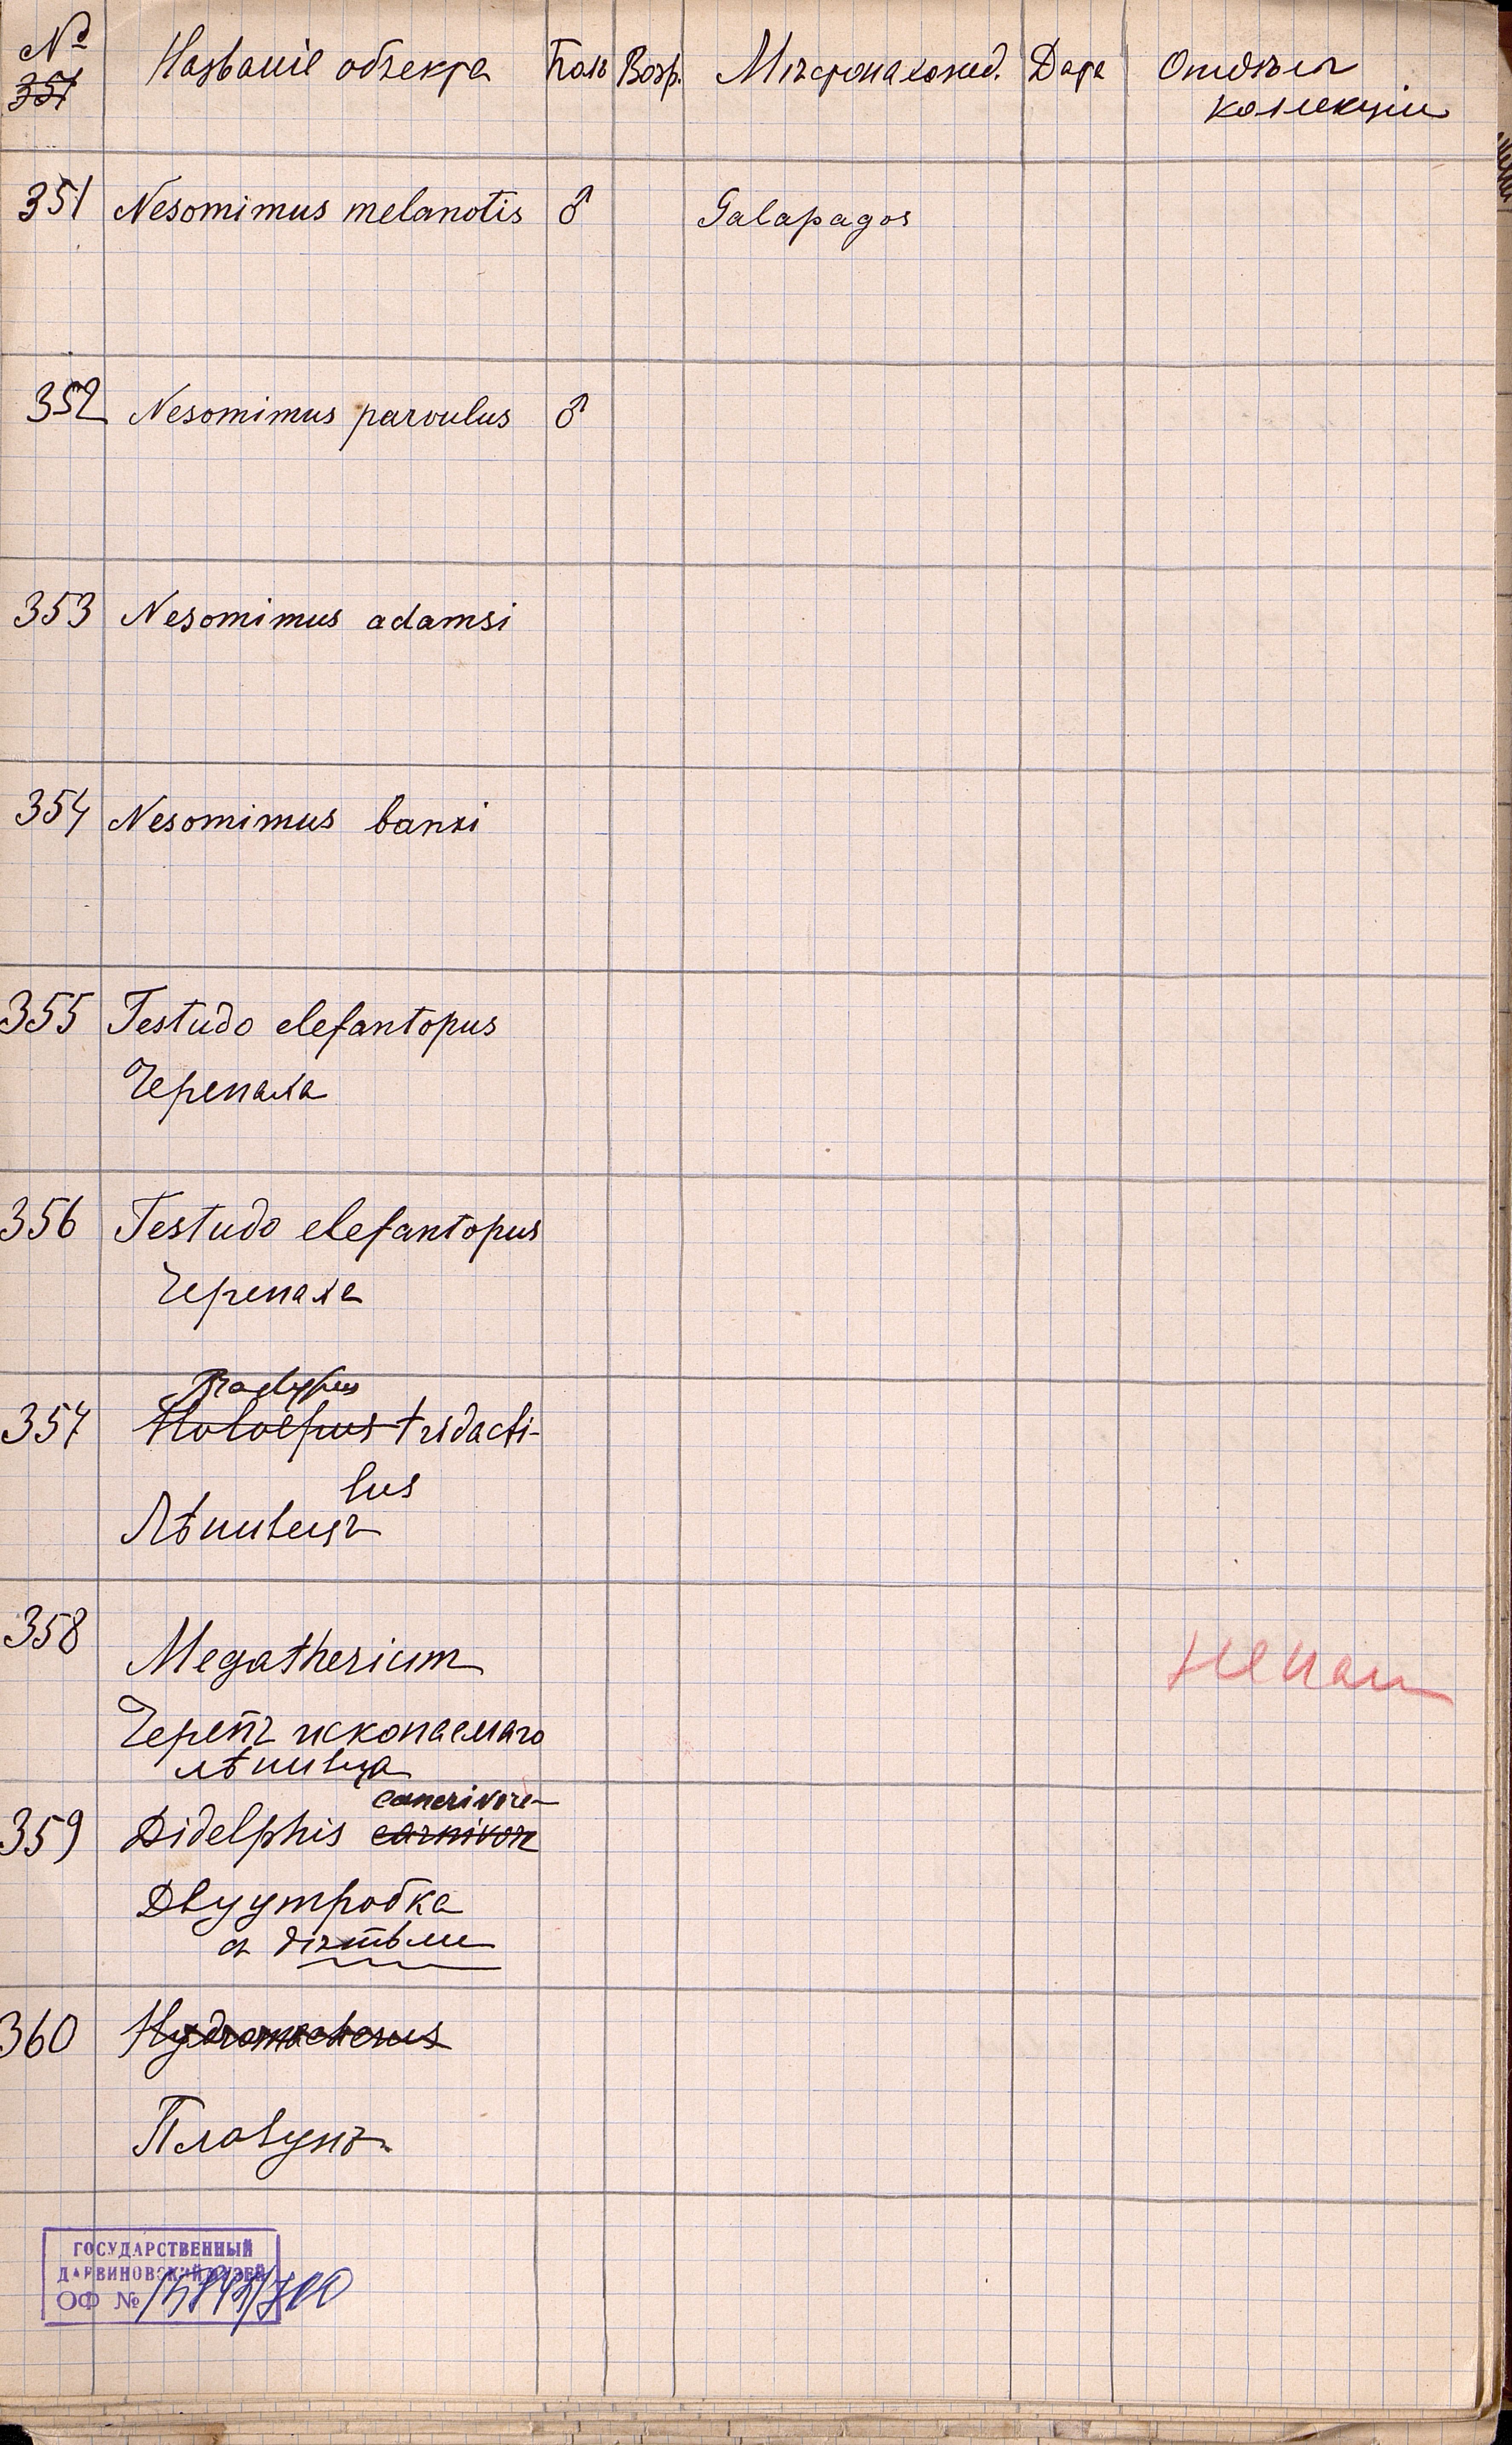 № Названіе объекта Полъ Возр. Мѣстонахожд. Дата Отдѣлъ
351 коллекціи
351 Nesomimus melanotis ♂ Galapagos
352 Nesomimus parvulus ♂
353 Nesomimus adamsi
354 Nesomimus banxi
355 Testudo elefantopus
Черепаха
356 Testudo elefantopus
Черепаха
Bradypus
357 tridacti-
lus
Лѣнивецъ
358 Megatherium
Черепъ ископаемаго
лѣнивца
359 Didelphis carnivore
Двуутробка
съ дѣтьми
360 Hydrochoerus
Плавунъ
ГОСУДАРСТВЕННЫЙ
ДАРВИНОВСКИЙ МУЗЕЙ
ОФ №